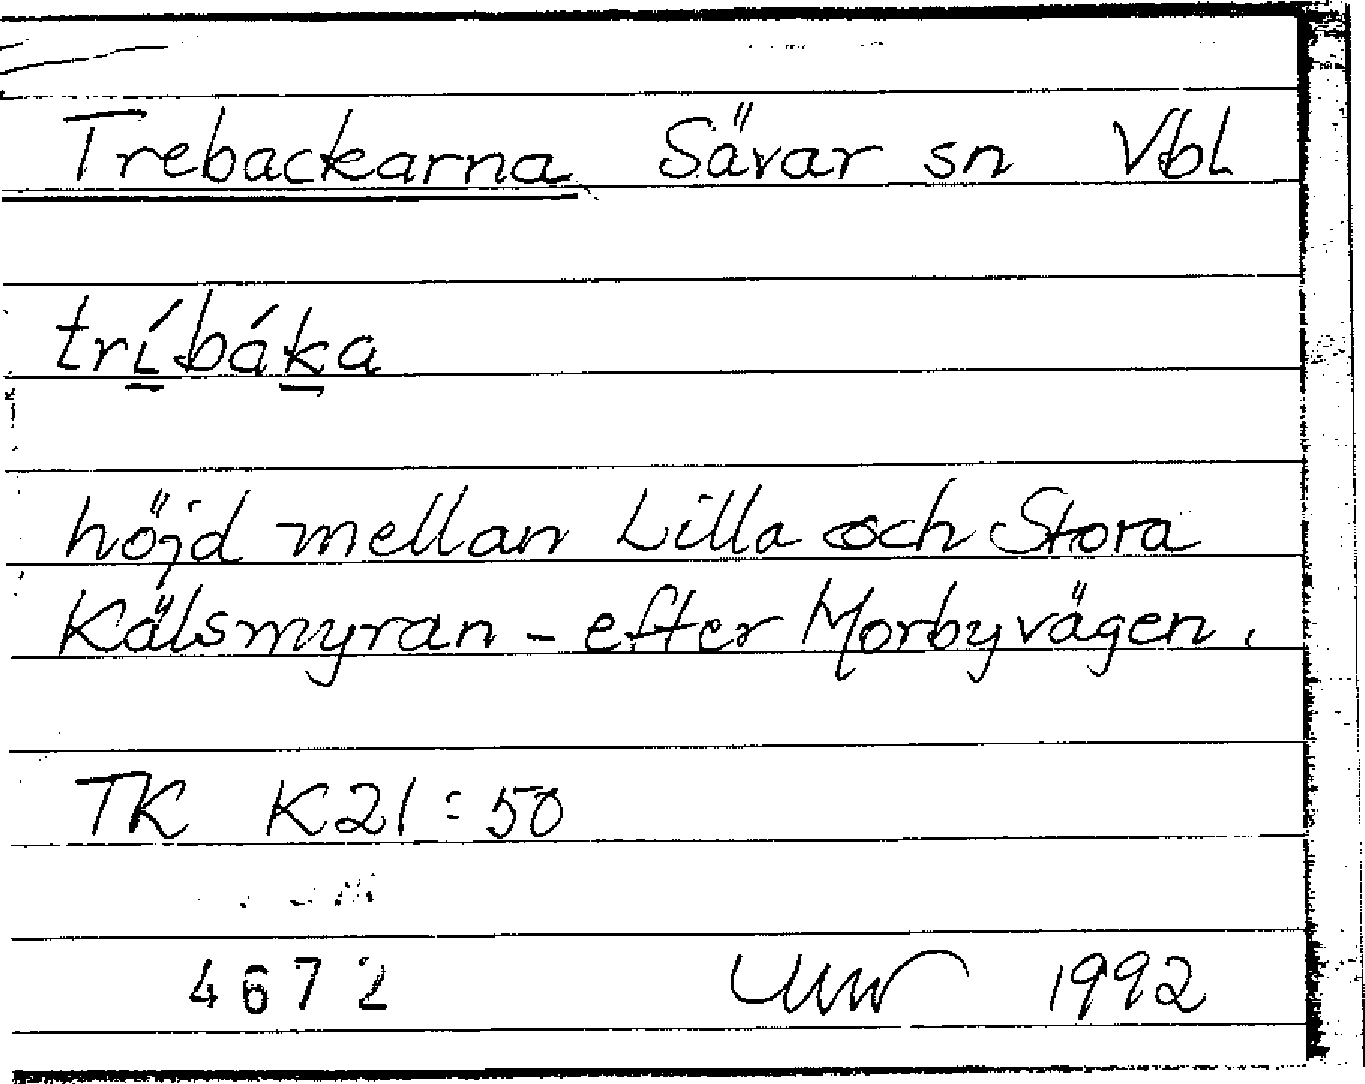 Trebackarna Sävar sn Vbl
trí̱báḵa
höjd mellan Lilla och Stora
Kälsmyran - efter Morbyvägen.
TK K21:50
4672 1992